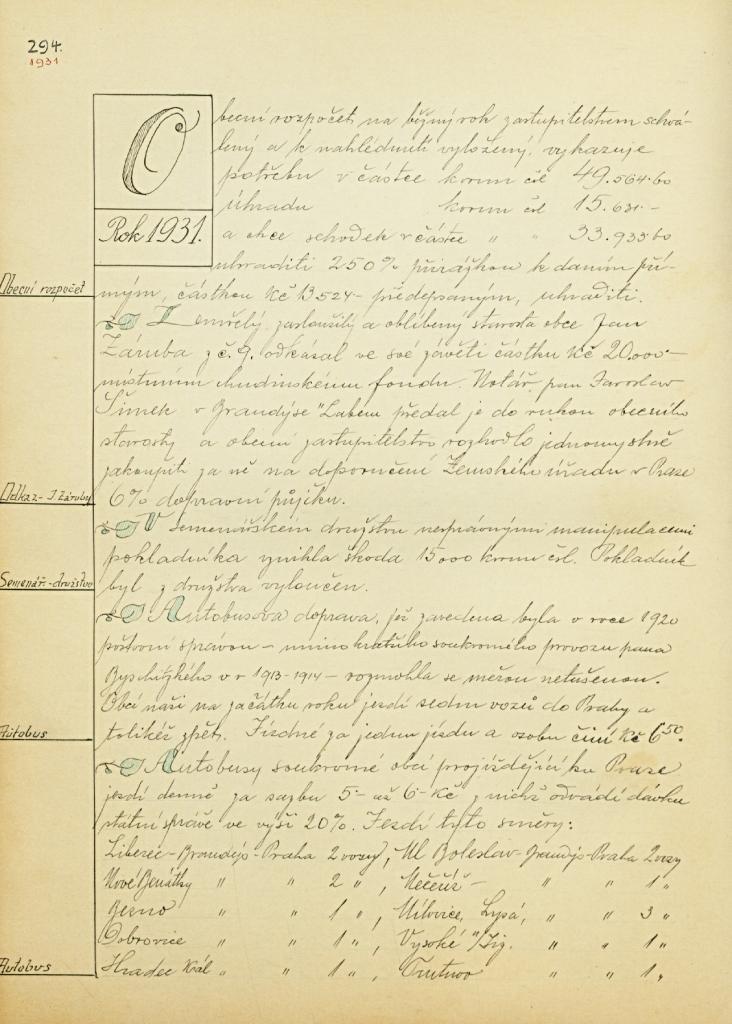 294.
1931
O
Rok 1931.
becní rozpočet na běžný rok zastupitelstvem schvá-
lený a k nahlédnutí vyložený, vykazuje
potřebu v částce korun čsl 49.564·60
úhradu korun čsl 15.631·-
a chce schodek v částce " " 33.933·60
uhraditi 250% přirážkou k daním pří-
Obecní rozpočet
mým, částkou Kč 13524- předepsaným, uhraditi.
Zemřelý, zasloužilý a oblíbený starosta obce Jan
Záruba z č. 9. odkázal ve své závěti částku Kč 20.000-
místnímu chudinskému fondu. Notář pan Jaroslav
Šimek v Brandýse n/Labem předal je do rukou obecního
starosty a obecní zastupitelstvo rozhodlo jednomyslně
zakoupiti za ně na doporučení Zemského úřadu v Praze
Odkaz - J. Záruby
6% dopravní půjčku.
V semenářském družstvu nesprávnými manipulacemi
pokladníka vznikla škoda 15000 korun čsl. Pokladník
Semenář.-družstvo
byl z družstva vyloučen.
Autobusová doprava, jež zavedena byla v roce 1920
poštovní správou - mimo kratšího soukromého provozu pana
Byschitzkého v r 1913-1914 - rozmohla se měrou netušenou.
Obcí naší na začátku roku jezdí sedm vozů do Prahy a
Autobus
tolikéž zpět. Jízdné za jednu jízdu a osobu činí Kč 6 50.
Autobusy soukromé obcí projíždějící ku Praze
jezdí denně za sazbu 5- až 6- Kč z nichž odvádí dávku
státní správě ve výši 20%. Jezdí tyto směry:
Liberec-Brandýs-Praha 2 vozy, Ml Boleslav-Brandýs-Praha 2 vozy
Nové Benátky " " 2 ", Mečeříž - " " 1 "
Bezno " " 1 ", Milovice, Lysá, " " 3 "
Dobrovice " " 1 ", Vysoké n/Jiz. " " 1 "
Autobus
Hradec Král " " 1 ", Trutnov " " 1 "